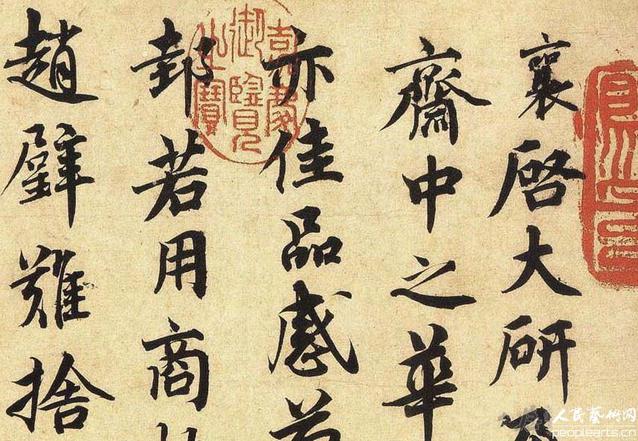 襄啓大研
齋中之華
亦佳品感
邦若用商
趙璧難捨
嘉慶
御覽
之寶
人民藝術网
peoplearts.cn